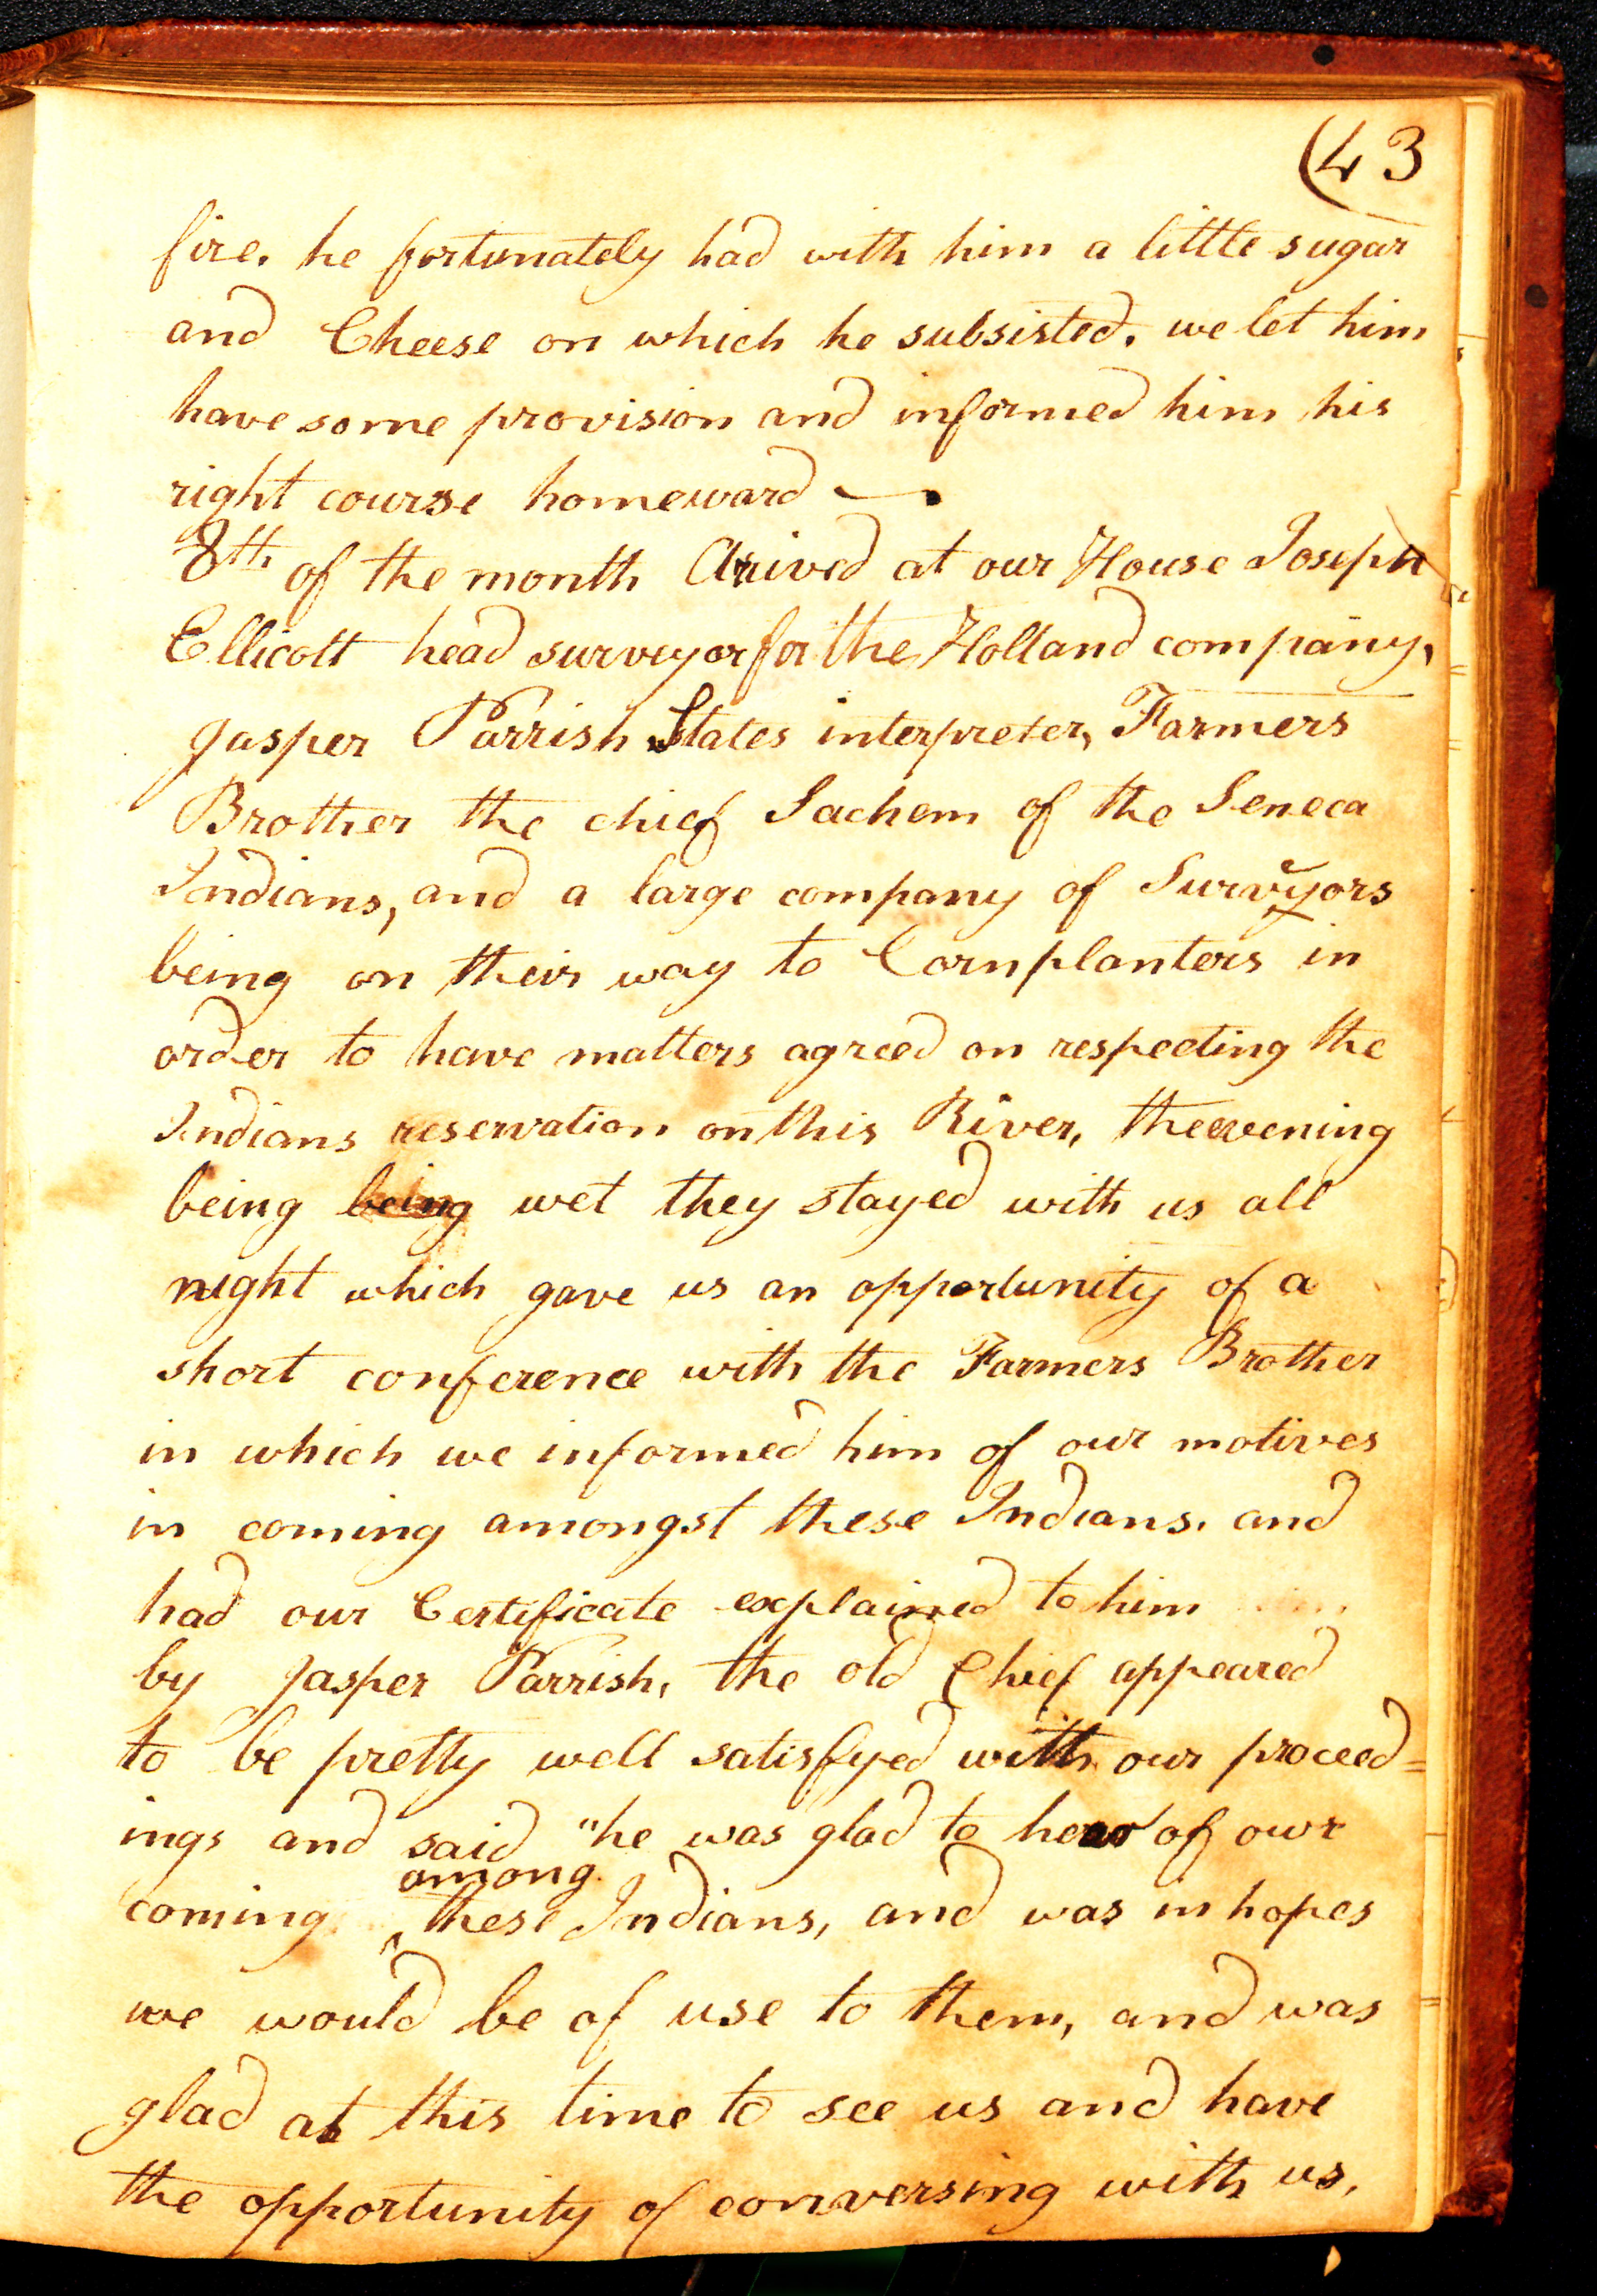 (43
fire. he fortunately had with him a little sugar
and Cheese on which he subsisted. we let him
have some provision and informed him his
right course homeward —
8th of the month Arived at our House Joseph
Ellicott head surveyor for the Holland company,
Jasper Parrish States interpreter, Farmers
Brother the chief Sachem of the Seneca
Indians, and a large company of Surveyors
being on their way to Cornplanters in
order to have matters agreed on respecting the
Indians reservation on this River, the evening
being being wet they stayed with us all
night which gave us an opportunity of a
short conference with the Farmers Brother
in which we informed him of our motives
in coming amongst these Indians. and
had our Certificate explained to him
by Jasper Parrish, the old Chief appeared
to be pretty well satisfyed with our proceed=
ings and said "he was glad to hear of our
among
coming ‸ these Indians, and was in hopes
we would be of use to them, and was
glad at this time to see us and have
the opportunity of conversing with us,